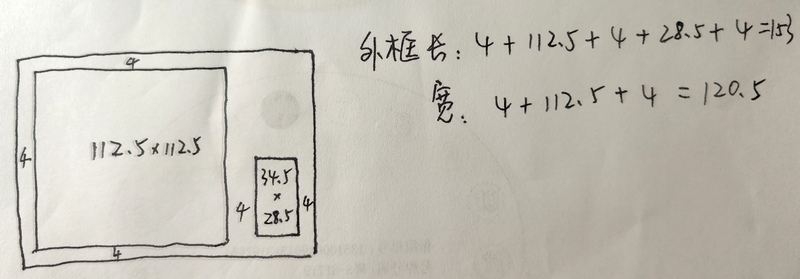 外框长: 4+112.5+4+28.5+4=153
宽: 4+112.5+4=120.5
4
4
112.5×112.5
34.5
×
28.5
4
4
4